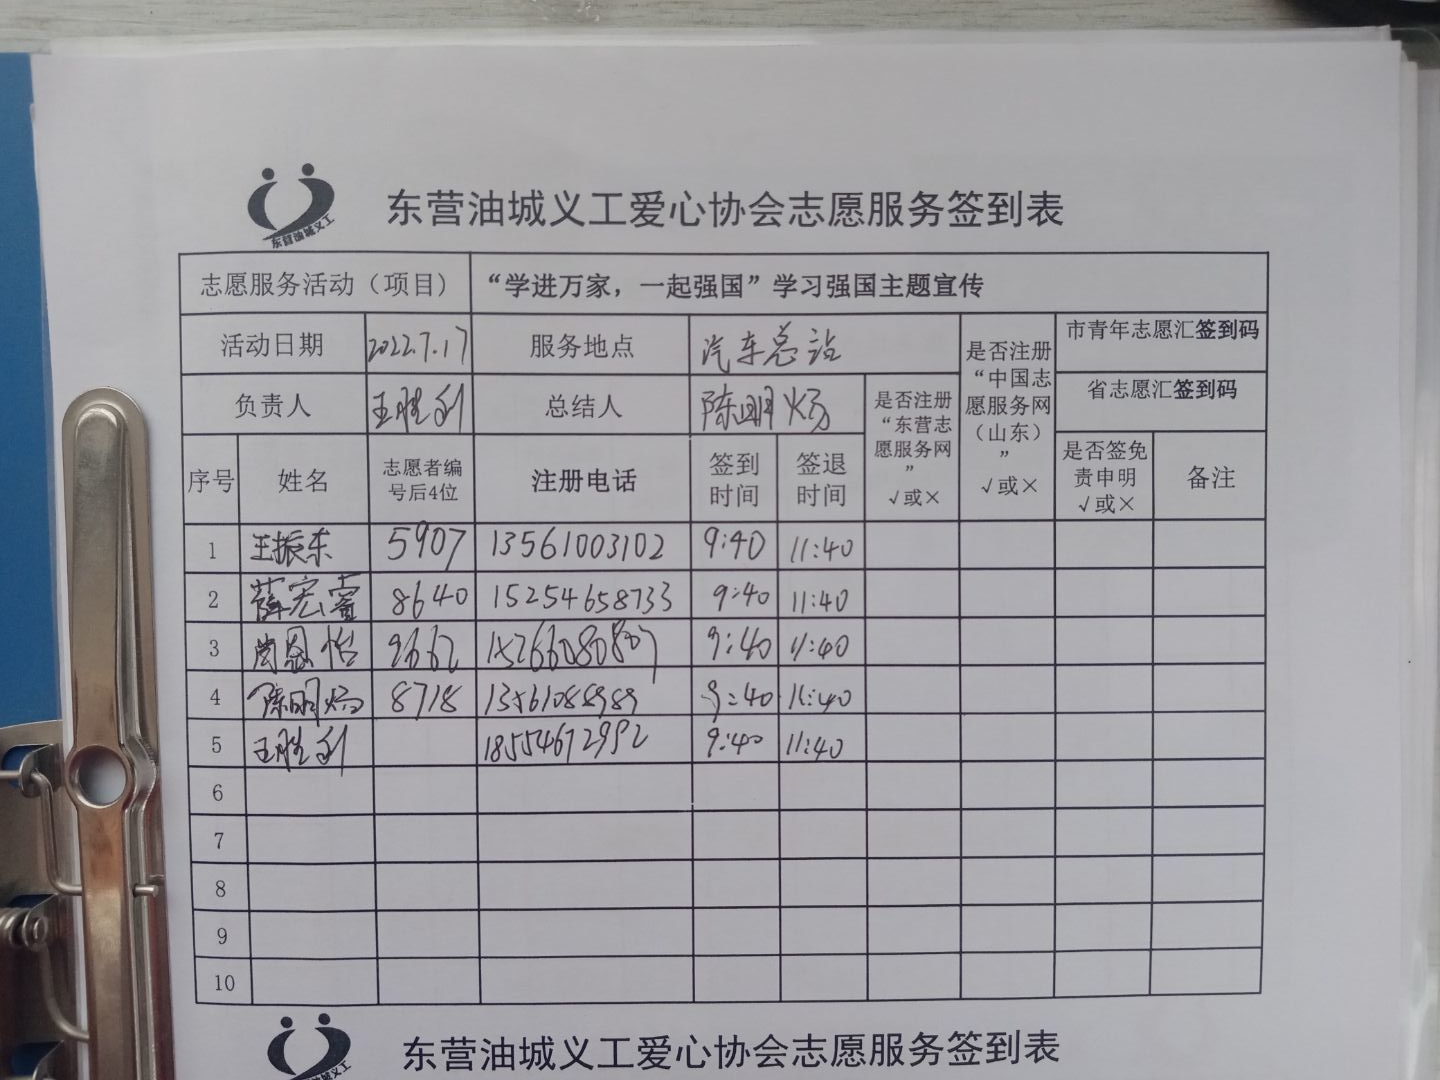 东营油城义工
东营油城义工爱心协会志愿服务签到表
志愿服务活动（项目） “学进万家，一起强国”学习强国主题宣传
活动日期 2022.7.17 服务地点 汽车总站 是否注册“中国志愿服务网（山东）” √或× 市青年志愿汇签到码
负责人 王胜利 总结人 陈明炀 是否注册“东营志愿服务网” √或× 省志愿汇签到码
序号 姓名 志愿者编号后4位 注册电话 签到时间 签退时间 是否签免责申明 √或× 备注
1 王振东 5907 13561003102 9:40 11:40
2 薛宏睿 8640 15254658733 9:40 11:40
3 尚恩怡 9662 15266080807 9:40 11:40
4 陈明炀 8718 13561088989 9:40 11:40
5 王胜利 18554672992 9:40 11:40
6
7
8
9
10
东营油城义工爱心协会志愿服务签到表